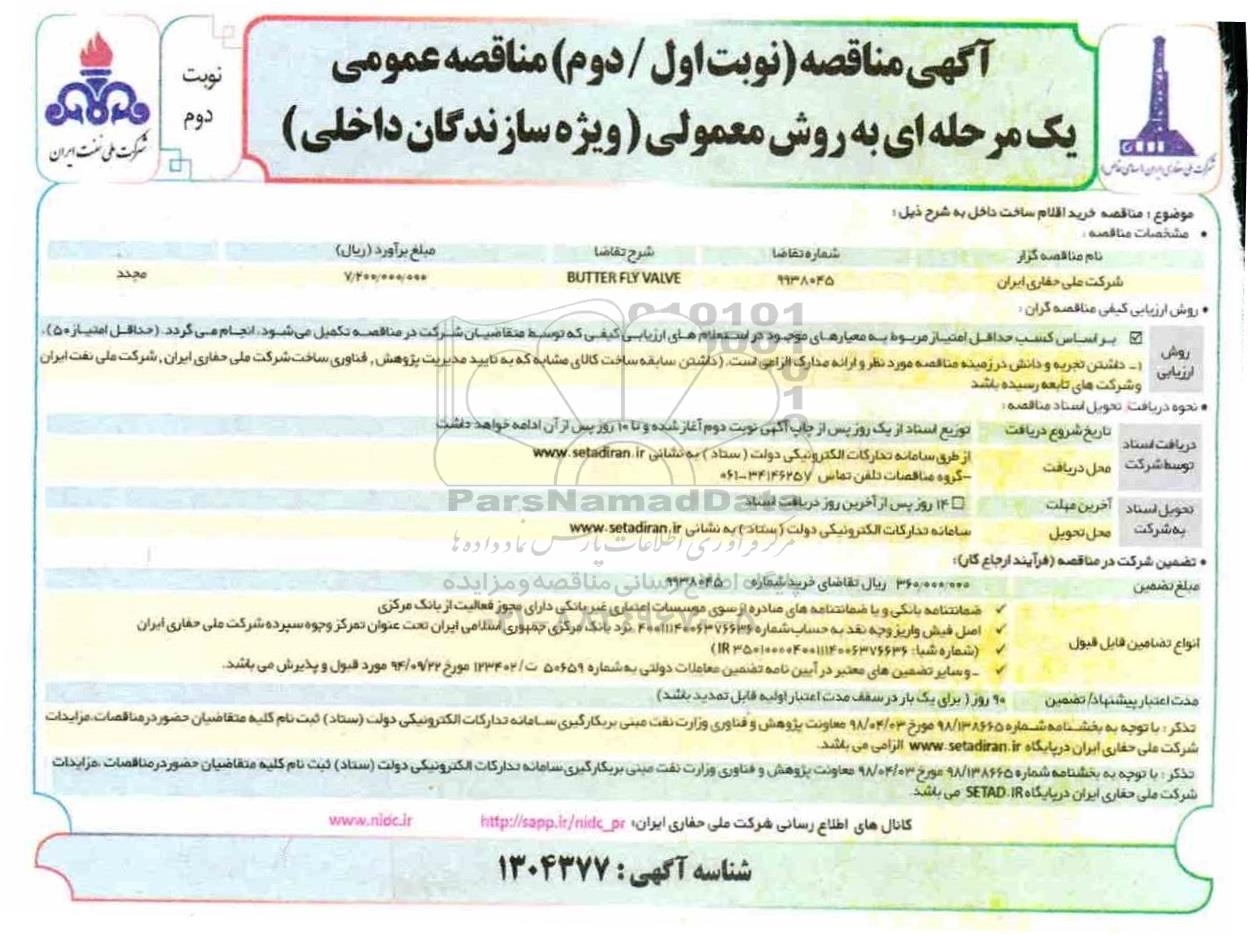 آگهی مناقصه (نوبت اول / دوم) مناقصه عمومی
یک مرحله ای به روش معمولی (ویژه سازندگان داخلی)
نوبت
دوم
شرکت ملی نفت ایران
شرکت ملی حفاری ایران (سهامی خاص)
موضوع : مناقصه خرید اقلام ساخت داخل به شرح ذیل :
• مشخصات مناقصه :
نام مناقصه گزار شماره تقاضا شرح تقاضا مبلغ برآورد (ریال)
شرکت ملی حفاری ایران ۹۹۳۸۰۴۵ BUTTER FLY VALVE ۷/۲۰۰/۰۰۰/۰۰۰ مجدد
• روش ارزیابی کیفی مناقصه گران :
روش ارزیابی
☑ بر اساس کسب حداقل امتیاز مربوط به معیارهای موجود در استعلام های ارزیابی کیفی که توسط متقاضیان شرکت در مناقصه تکمیل می شود، انجام می گردد. (حداقل امتیاز ۵۰).
۱- داشتن تجربه و دانش در زمینه مناقصه مورد نظر و ارائه مدارک الزامی است. (داشتن سابقه ساخت کالای مشابه که به تایید مدیریت پژوهش , فناوری ساخت شرکت ملی حفاری ایران , شرکت ملی نفت ایران
وشرکت های تابعه رسیده باشد
• نحوه دریافت، تحویل اسناد مناقصه :
دریافت اسناد توسط شرکت
تاریخ شروع دریافت توزیع اسناد از یک روز پس از چاپ آگهی نوبت دوم آغاز شده و تا ۱۰ روز پس از آن ادامه خواهد داشت
محل دریافت از طرق سامانه تدارکات الکترونیکی دولت ( ستاد ) به نشانی www.setadiran.ir
-گروه مناقصات تلفن تماس ۳۴۱۴۶۲۵۷-۰۶۱
ParsNamadData
تحویل اسناد به شرکت
آخرین مهلت ☐ ۱۴ روز پس از آخرین روز دریافت اسناد
محل تحویل سامانه تدارکات الکترونیکی دولت (ستاد) به نشانی www.setadiran.ir
مرکز فرآوری اطلاعات پارس نماد داده ها
• تضمین شرکت در مناقصه (فرآیند ارجاع کار):
پایگاه اطلاع رسانی مناقصه و مزایده
مبلغ تضمین ۳۶۰/۰۰۰/۰۰۰ ریال تقاضای خرید شماره ۹۹۳۸۰۴۵
انواع تضامین قابل قبول
✓ ضمانتنامه بانکی و یا ضمانتنامه های صادره از سوی موسسات اعتباری غیر بانکی دارای مجوز فعالیت از بانک مرکزی
✓ اصل فیش واریز وجه نقد به حساب شماره ۴۰۰۱۱۱۴۰۰۶۳۷۶۶۳۶ نزد بانک مرکزی جمهوری اسلامی ایران تحت عنوان تمرکز وجوه سپرده شرکت ملی حفاری ایران
✓ (شماره شبا: IR ۳۵۰۱۰۰۰۰۴۰۰۱۱۱۴۰۰۶۳۷۶۶۳۶)
✓ -و سایر تضمین های معتبر در آیین نامه تضمین معاملات دولتی به شماره ۵۰۶۵۹ ت/۱۲۳۴۰۲ مورخ ۹۴/۰۹/۲۲ مورد قبول و پذیرش می باشد.
مدت اعتبار پیشنهاد/ تضمین ۹۰ روز ( برای یک بار در سقف مدت اعتبار اولیه قابل تمدید باشد)
تذکر : با توجه به بخشنامه شماره ۹۸/۱۳۸۶۶۵ مورخ ۹۸/۰۴/۰۳ معاونت پژوهش و فناوری وزارت نفت مبنی بربکارگیری سامانه تدارکات الکترونیکی دولت (ستاد) ثبت نام کلیه متقاضیان حضور در مناقصات،مزایدات
شرکت ملی حفاری ایران درپایگاه www.setadiran.ir الزامی می باشد.
تذکر : با توجه به بخشنامه شماره ۹۸/۱۳۸۶۶۵ مورخ ۹۸/۰۴/۰۳ معاونت پژوهش و فناوری وزارت نفت مبنی بربکارگیری سامانه تدارکات الکترونیکی دولت (ستاد) ثبت نام کلیه متقاضیان حضور درمناقصات ،مزایدات
شرکت ملی حفاری ایران درپایگاه SETAD.IR می باشد.
کانال های اطلاع رسانی شرکت ملی حفاری ایران: http://sapp.ir/nidc_pr www.nidc.ir
شناسه آگهی : ۱۳۰۴۳۷۷